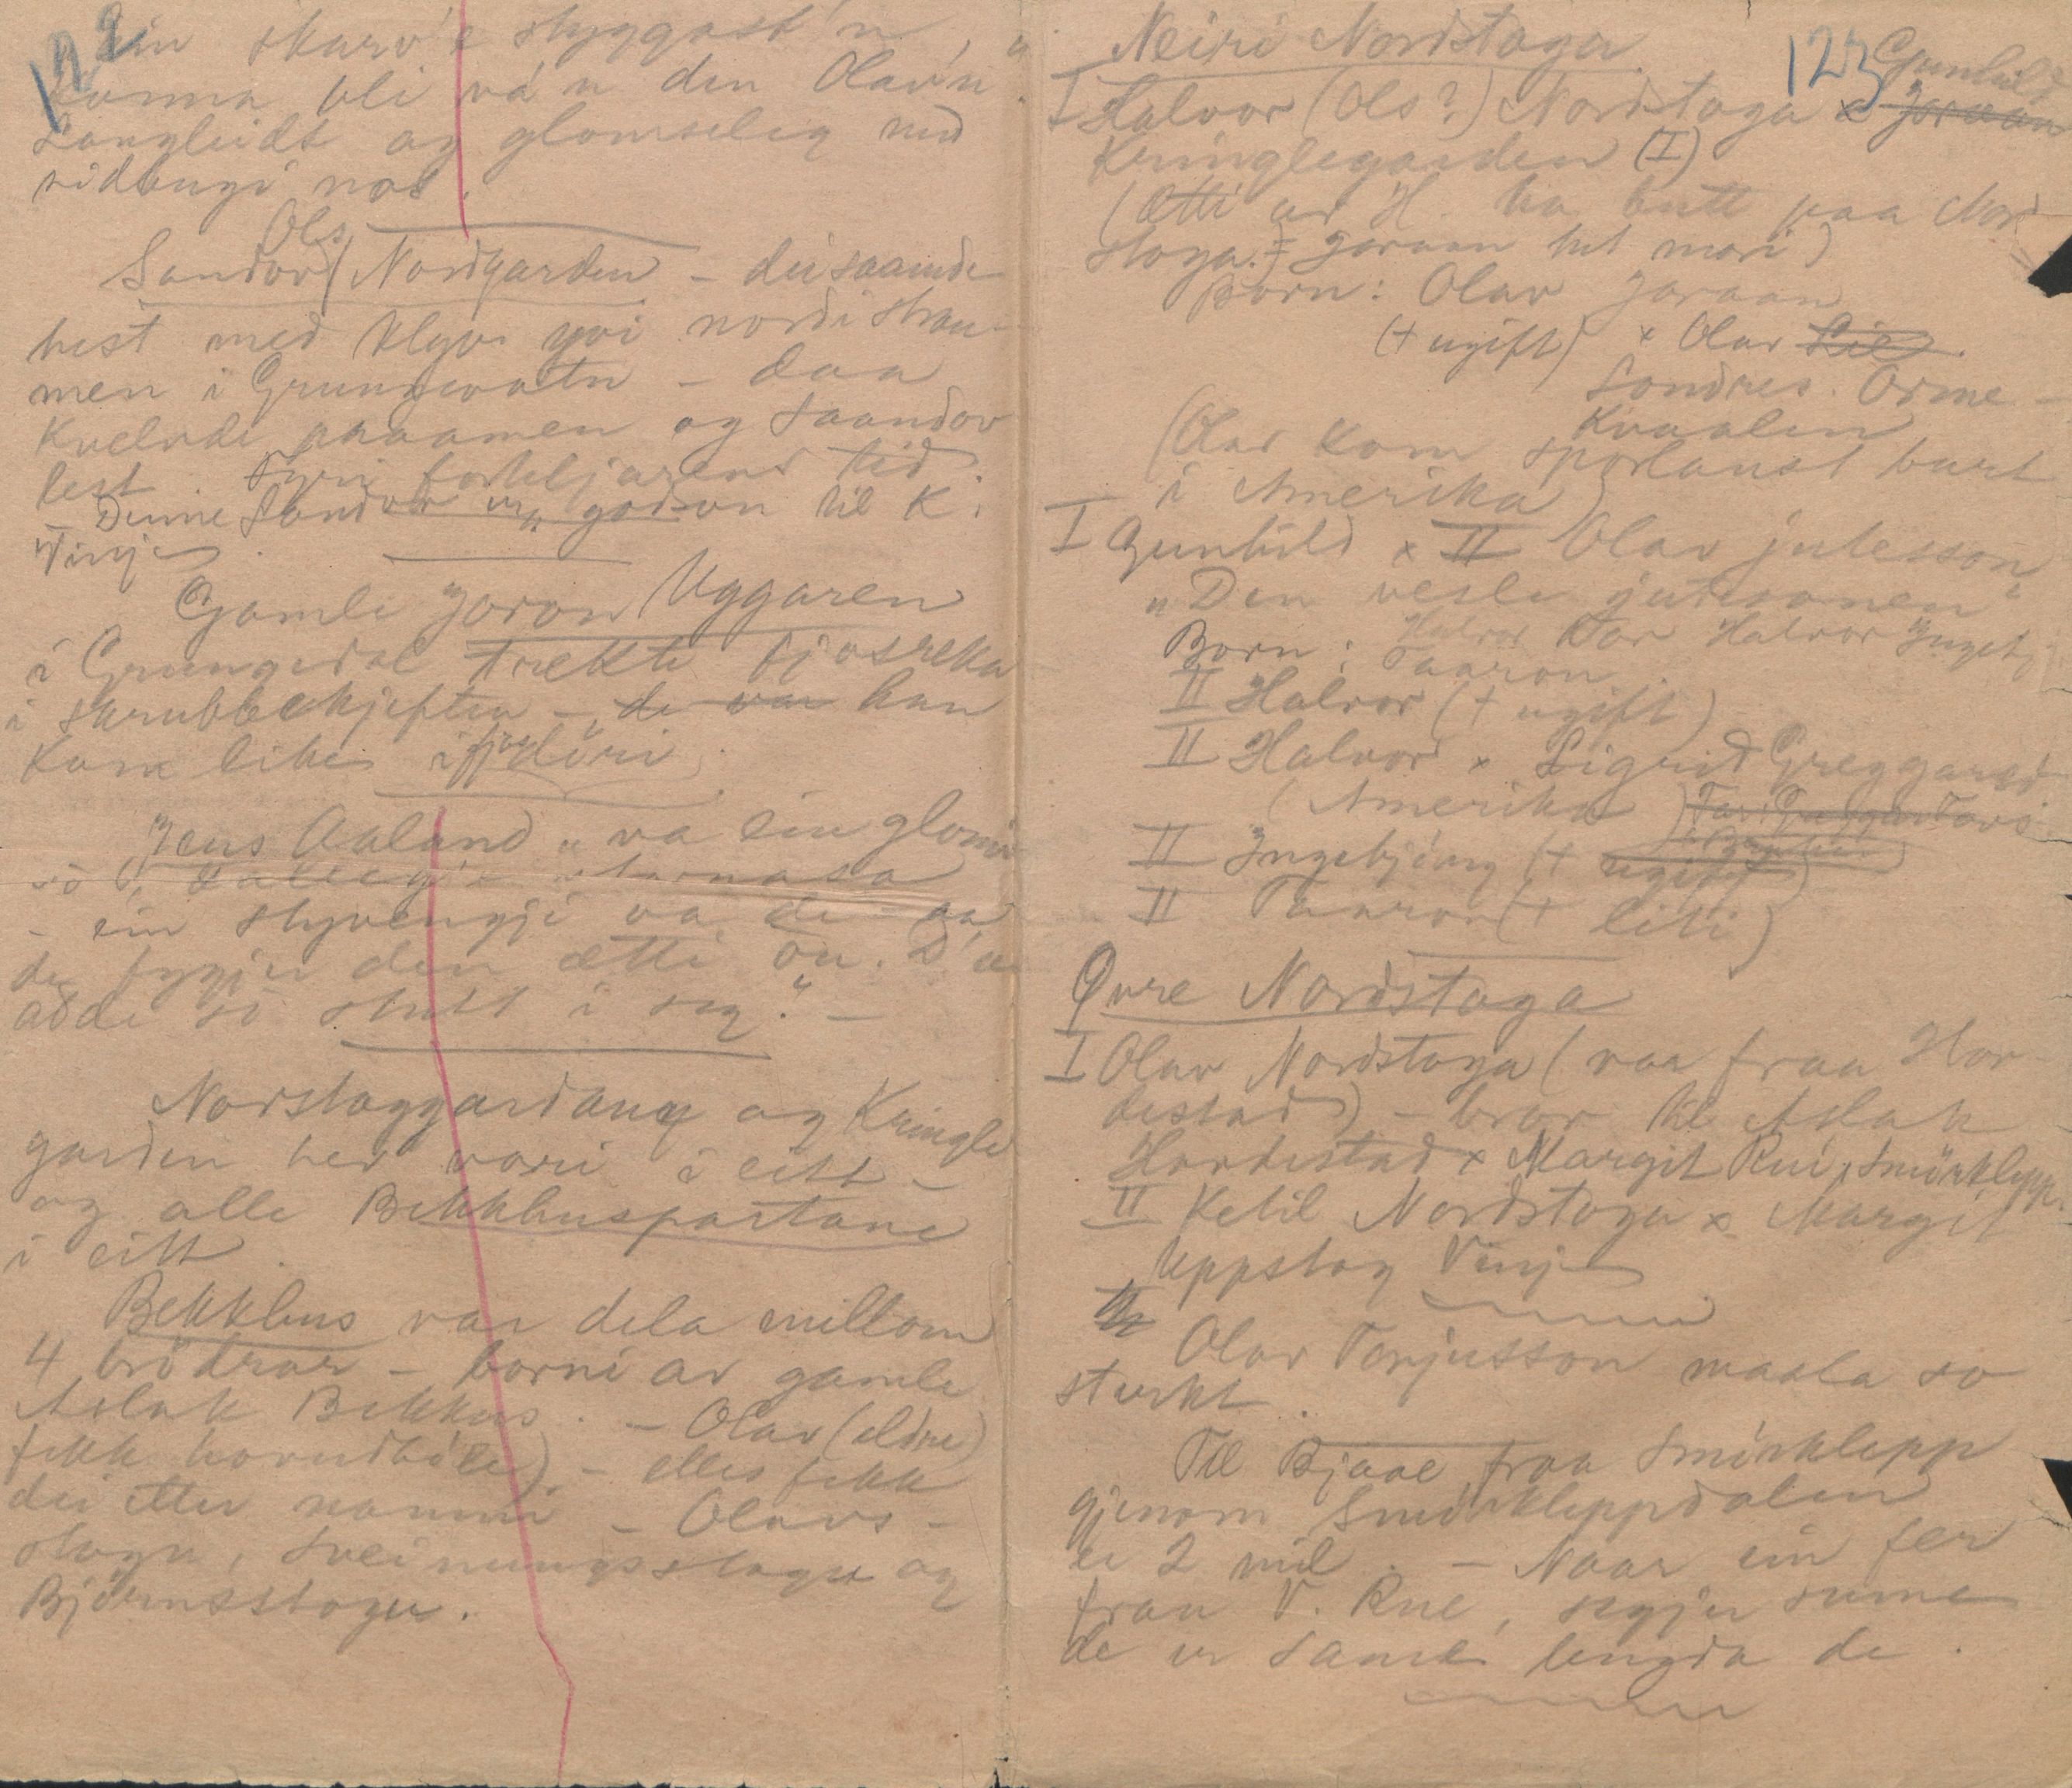 122
ein skarv'e styggast'n, o
konna bli vá'n den Olav'n
Langleidt og glomseleg med
sidengi nos.
Ols
Sandov Nordgarden – dei saamde
hest med klyv yvi nordi strau-
men i Grungevatn – daa
Kvelvde praamen og Saandov
lest. Fyri forteljarens tid.
Denne Sandov var godson til K.
Vinje.
Gamle Joron Uggaren
i Grungedal trekte fjosreka
i skrubbekjeften – de var han
kom like i fjosdöri
Jens Aaland „va ein glomi
so
– ein styvengji va de – aa
de fygjer den ætti ou. D'æ
adde so stutt i seg." –
Norstoggardane og Kringle
garden hev vori i eitt –
og alle Bekkhuspartane
i eitt.
Bekkhus var dela millom
4 brödrar – borni av gamle
Aslak Bekkus. – Olav (eldre)
fekk hovudböle) – elles fekk
dei etter namni – Olavs-
stogu, Sveinungsstogu og
Björnsstogu.
123
Neiri Nordstoga
Gunhild
I Halvor (Ols?) Nordstoga x Joraan
Kringlegarden (I)
(Ætti av H. ha butt paa Nord
stoga. Joraan het mori)
Born: Olav Joraan
(+ ugift) x Olav Lie.
Sondres. Orme-
Kvaalen
(Olav kom sporlaust burt
i Amerika)
I Gunhild x II Olav Jutesson
„Den vesle jutesonen"
Born: Halvor Tor Halvor Ingebj
Taaron
II Halvor (+ ugift)
II Halvor x Sigrid Greggarsd.
(Amerika)
II Ingebjörg (+ ugift)
II Taaron (+ liti)
Øvre Nordstoga
I Olav Nordstoga (var fraa Hor-
destad) – bror til Aslak
Hordestad x Margit Rui, Smörklepp.
II Ketil Nordstoga x Margit
Uppstog Vinje
Olav Terjusson maala so
sterkt.
Til Bjaae fraa Smörklepp
gjenom Smörkleppdalen
er 2 mil. – Naar ein fer
fraa V. Rue, segjer sume
de er same lengda de.